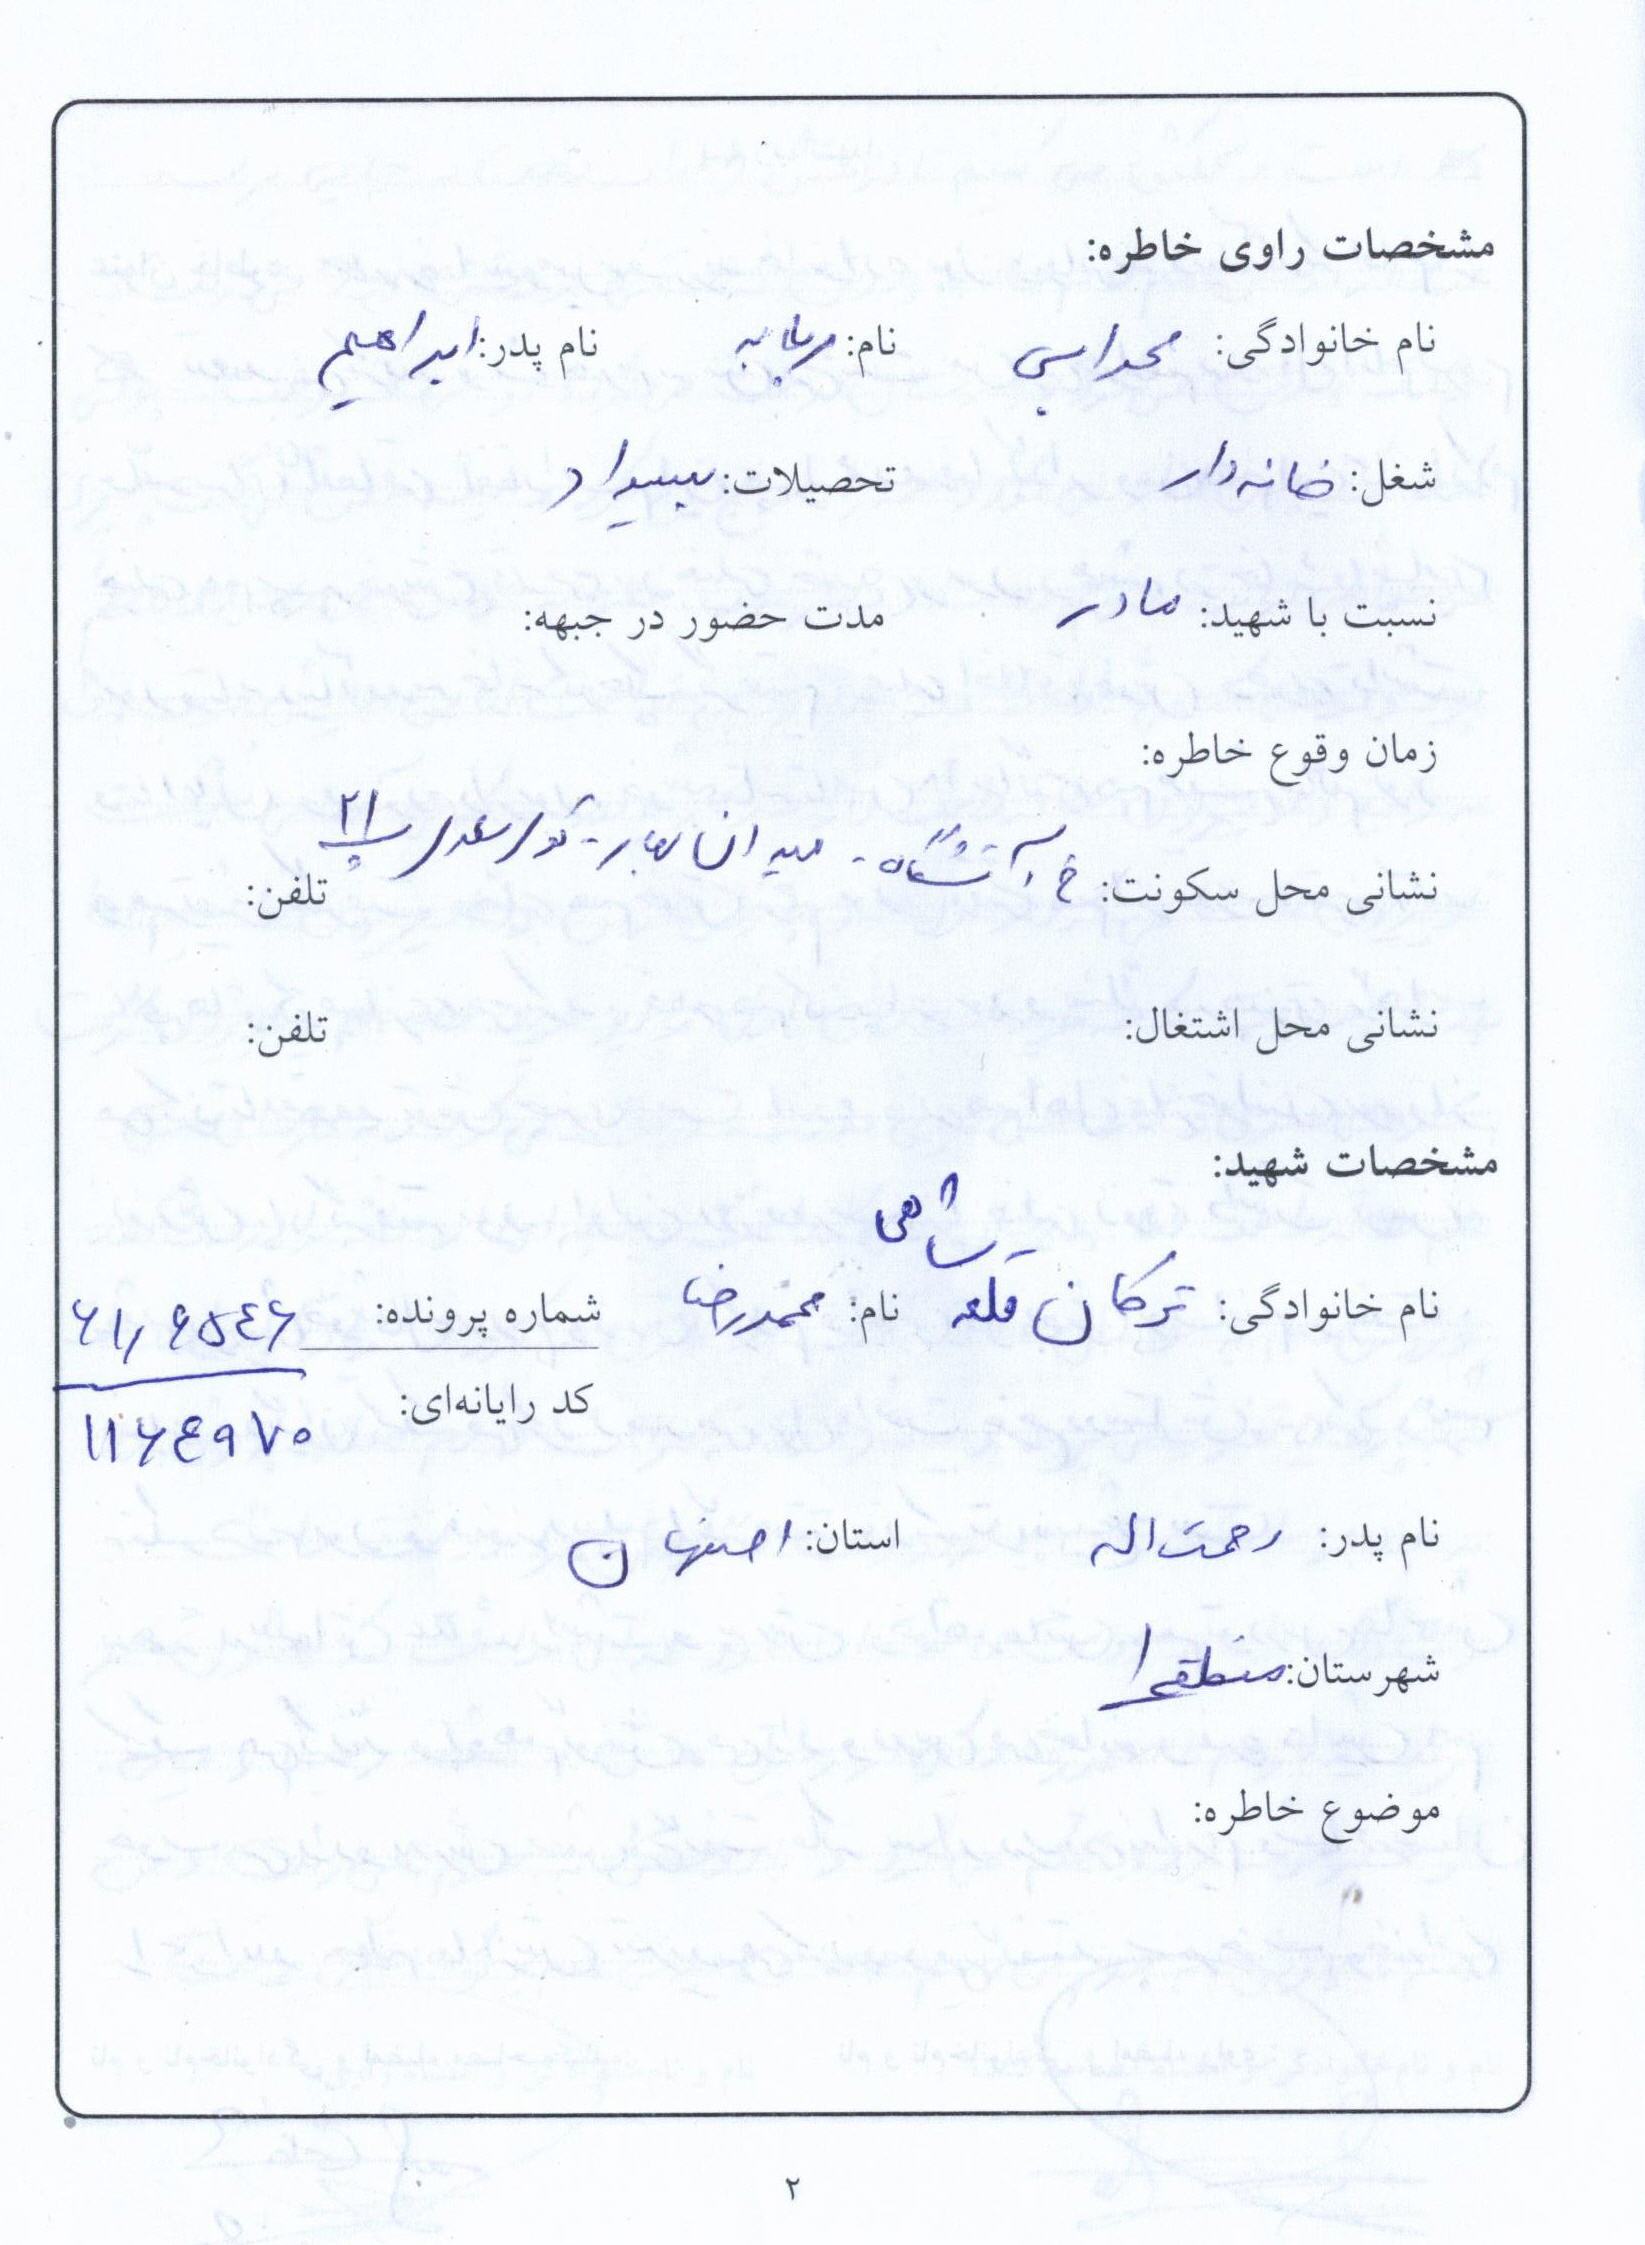 مشخصات راوی خاطره:
نام خانوادگی: نام: ربابه نام پدر: ابراهیم
شغل: خانه دار تحصیلات: بیسواد
نسبت با شهید: مادر مدت حضور در جبهه:
زمان وقوع خاطره:
نشانی محل سکونت: خ آتشگاه - میدان - پ ۲۱ تلفن:
نشانی محل اشتغال: تلفن:
مشخصات شهید:
نام خانوادگی: ترکان قلعه شاهی نام: محمدرضا شماره پرونده: ۶۱/۶۵۴۶
کد رایانه‌ای: ۱۱۶۴۹۷۵
نام پدر: رحمت اله استان: اصفهان
شهرستان: منطقه ۱
موضوع خاطره:
۲